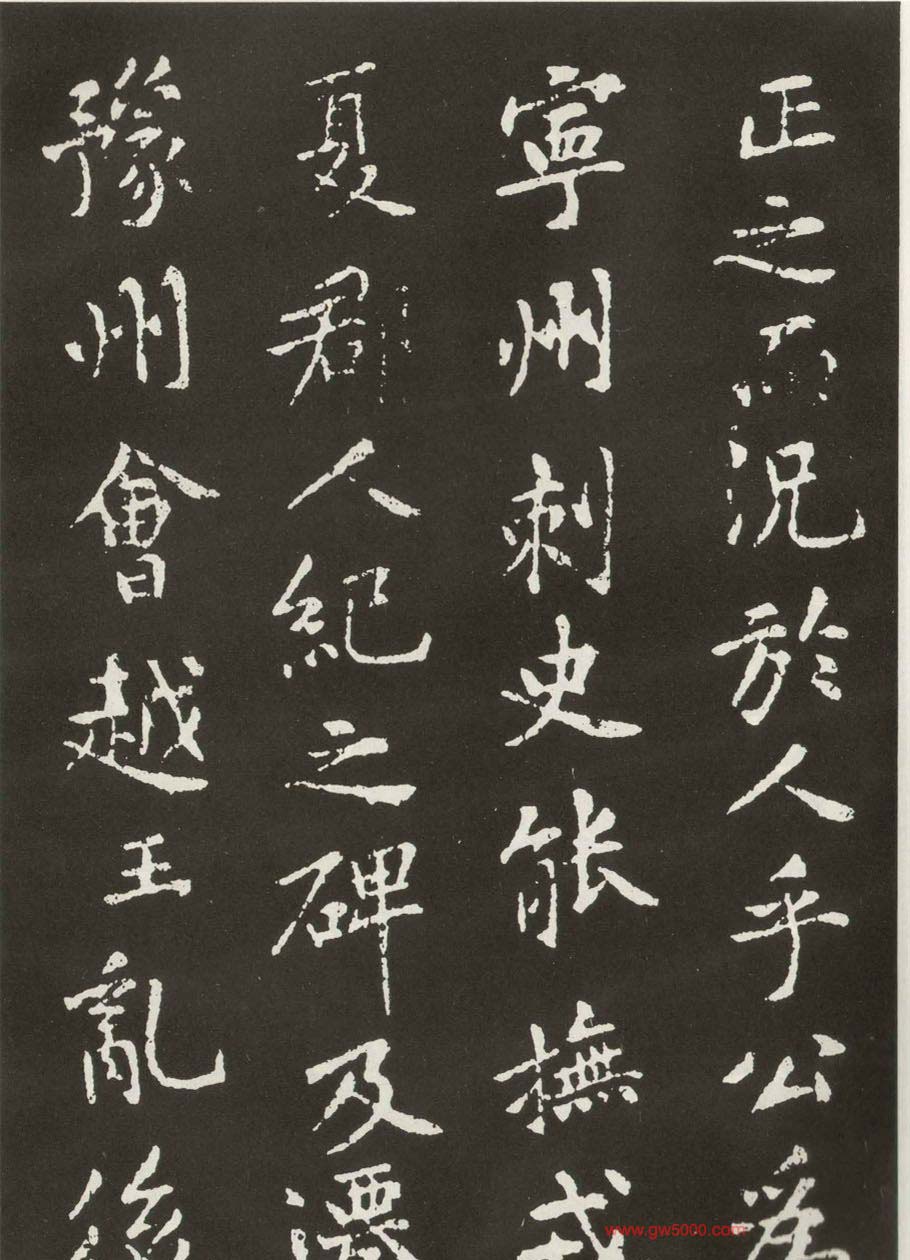 正之而況於人乎公為
寧州刺史能撫戎
夏郡人紀之碑及遷
豫州會越王亂後
www.gw5000.com